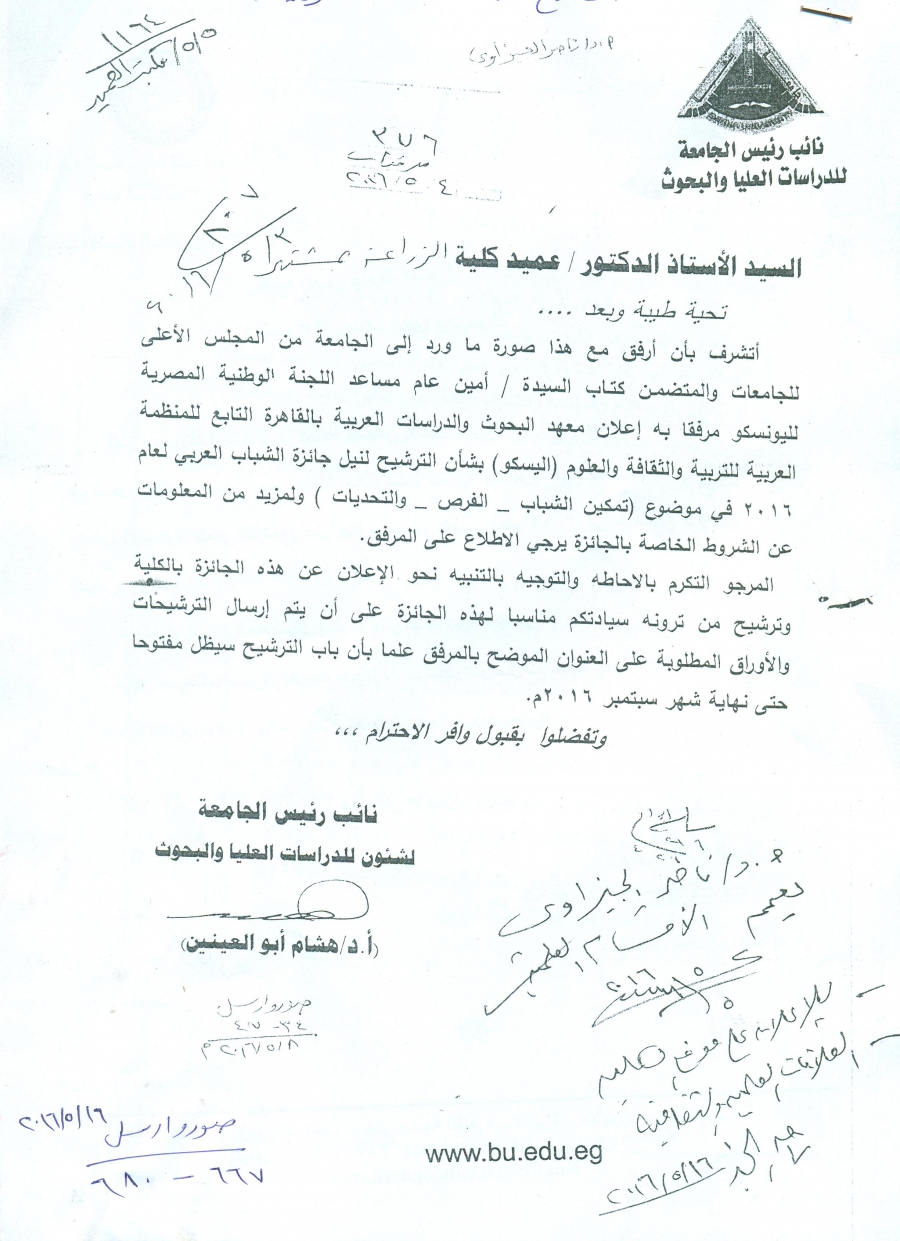 ١١٦٤
٥/٥
أ.د/ ناصر الجيزاوى
نائب رئيس الجامعة
للدراسات العليا والبحوث
٣٧٦
٢٠١٦/٥/٤
السيد الأستاذ الدكتور / عميد كلية الزراعة بمشتهر
تحية طيبة وبعد ....
أتشرف بأن أرفق مع هذا صورة ما ورد إلى الجامعة من المجلس الأعلى
للجامعات والمتضمن كتاب السيدة / أمين عام مساعد اللجنة الوطنية المصرية
لليونسكو مرفقا به إعلان معهد البحوث والدراسات العربية بالقاهرة التابع للمنظمة
العربية للتربية والثقافة والعلوم (اليسكو) بشأن الترشيح لنيل جائزة الشباب العربي لعام
٢٠١٦ في موضوع (تمكين الشباب _ الفرص _ والتحديات ) ولمزيد من المعلومات
عن الشروط الخاصة بالجائزة يرجي الاطلاع على المرفق.
المرجو التكرم بالاحاطه والتوجيه بالتنبيه نحو الإعلان عن هذه الجائزة بالكلية
وترشيح من ترونه سيادتكم مناسبا لهذه الجائزة على أن يتم إرسال الترشيحات
والأوراق المطلوبة على العنوان الموضح بالمرفق علما بأن باب الترشيح سيظل مفتوحا
حتى نهاية شهر سبتمبر ٢٠١٦م.
وتفضلوا بقبول وافر الاحترام ،،،
نائب رئيس الجامعة
لشئون للدراسات العليا والبحوث
(أ.د/هشام أبو العينين)
أ.د/ ناصر الجيزاوى
تعمم الأقسام العلمية
صدور وارسل
٣٤ - ٤٧
٢٠١٦/٥/٨م
للإعلان على موقع الكلية
العلاقات العلمية والثقافية
٢٠١٦/٥/١٦
صدور وارسل ٢٠١٦/٥/١٦
٦٦٧ - ٦٨٠
www.bu.edu.eg